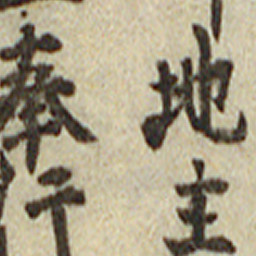 地主
奉行